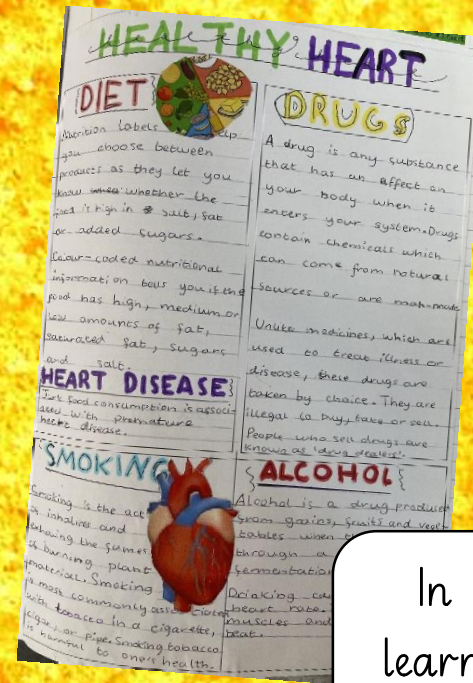 HEALTHY HEART
DIET
Nutrition labels
you choose between
products as they let you
know whether the
food is high in salt, fat
or added sugars.
Colour-coded nutritional
information tells you if the
food has high, medium or
low amounts of fat,
saturated fat, sugars
and salt.
HEART DISEASE
Junk food consumption is associ-
ated with premature
heart disease.
DRUGS
A drug is any substance
that has an affect on
your body when it
enters your system. Drugs
contain chemicals which
can come from natural
sources or are man-made
Unlike medicines, which are
used to treat illness or
disease, these drugs are
taken by choice. They are
illegal to buy, take or sell.
People who sell drugs are
knows as 'drug dealers'.
SMOKING
Smoking is the act
of inhaling and
exhaling the fumes
of burning plant
material. Smoking
is most commonly
with tobacco in a cigarette,
cigar, or pipe. Smoking tobacco
is harmful to one's health.
ALCOHOL
Alcohol is a drug produce
from grains, fruits and vege-
tables when
through a
Drinking
heart rate
muscles and
beat.
In
learn